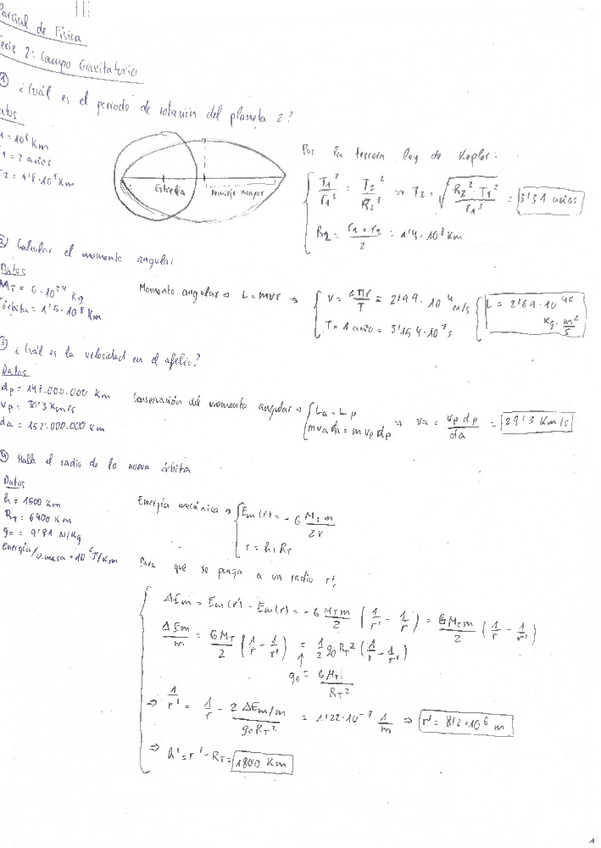 Parcial de Física
Serie 2: Campo Gravitatorio
① ¿Cuál es el periodo de rotación del planeta 2?
Datos
r1 = 10^8 Km
T1 = 2 años
r2 = 1'8·10^8 Km
Estrella
Semieje mayor
Por la tercera ley de Kepler:
T1²/r1³ = T2²/R2³ ⇒ T2 = √(R2³ T1²/r1³) = 3'31 años
R2 = (r1+r2)/2 = 1'4·10^8 Km
② Calcular el momento angular
Datos
MT = 6·10^24 Kg
r órbita = 1'5·10^8 Km
Momento angular ⇒ L = mvr ⇒
v = 2πr/T = 2'99·10^4 m/s
T = 1 año = 3'154·10^7 s
L = 2'69·10^40 Kg·m²/s
③ ¿Cuál es la velocidad en el afelio?
Datos
dp = 147.000.000 Km
vp = 30'3 Km/s
da = 152.000.000 Km
Conservación del momento angular ⇒
La = Lp
m va da = m vp dp
⇒ va = vp dp/da = 29'3 Km/s
④ Halla el radio de la nueva órbita
Datos
h = 1500 Km
RT = 6400 Km
g0 = 9'81 N/Kg
Energía mecánica ⇒
Em(r) = -G MT m/2r
r = h+RT
Para que se ponga a un radio r',
ΔEm = Em(r') - Em(r) = -G MT m/2 (1/r' - 1/r) = G MT m/2 (1/r - 1/r')
ΔEm/m = G MT/2 (1/r - 1/r') = 1/2 g0 RT² (1/r - 1/r')
g0 = G MT/RT²
⇒ 1/r' = 1/r - 2 ΔEm/m/g0 RT² = 1'22·10^-7 1/m ⇒ r' = 8'2·10^6 m
⇒ h' = r' - RT = 1800 Km
1